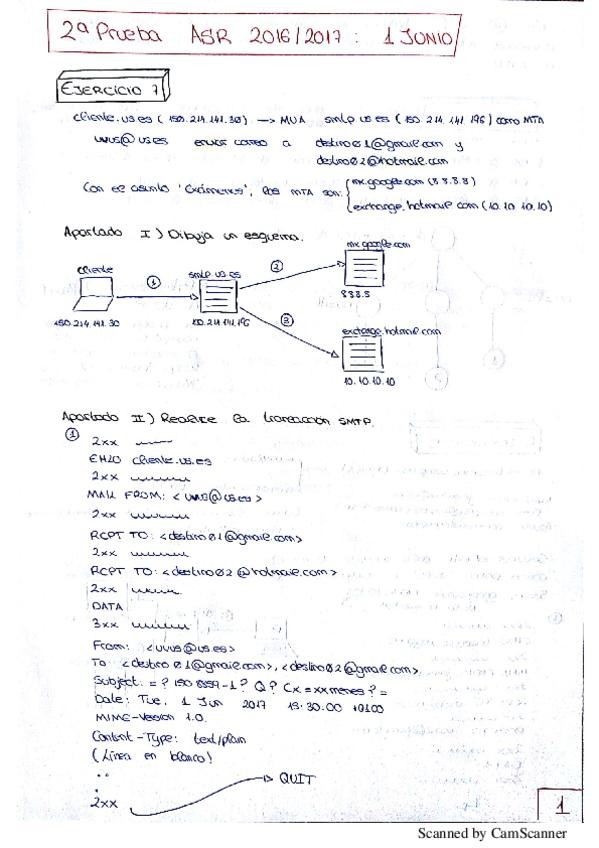 2ª Prueba ASR 2016/2017 : 1 JUNIO
EJERCICIO 7
cliente.us.es (150.214.141.30) → MUA smtp.us.es (150.214.141.196) como MTA
uvus@us.es enviar correo a destino01@gmail.com y
destino02@hotmail.com
Con el asunto 'Exámenes', los MTA son: mx.google.com (8.8.8.8)
exchange.hotmail.com (10.10.10.10)
Apartado I) Dibuja un esquema.
mx.google.com
cliente
smtp.us.es
1
2
8.8.8.8
150.214.141.30
150.214.141.196
3
exchange.hotmail.com
10.10.10.10
Apartado II) Realice la transacción SMTP.
1
2xx
EHLO cliente.us.es
2xx
MAIL FROM: <uvus@us.es>
2xx
RCPT TO: <destino01@gmail.com>
2xx
RCPT TO: <destino02@hotmail.com>
2xx
DATA
3xx
From: <uvus@us.es>
To: <destino01@gmail.com>, <destino02@gmail.com>
Subject: =? ISO 8859-1? Q? Ex=xxmenes? =
Date: Tue, 1 Jun 2017 15:30:00 +0100
MIME-Version 1.0.
Content-Type: text/plain
(Línea en blanco)
..
. → QUIT
2xx
1
Scanned by CamScanner